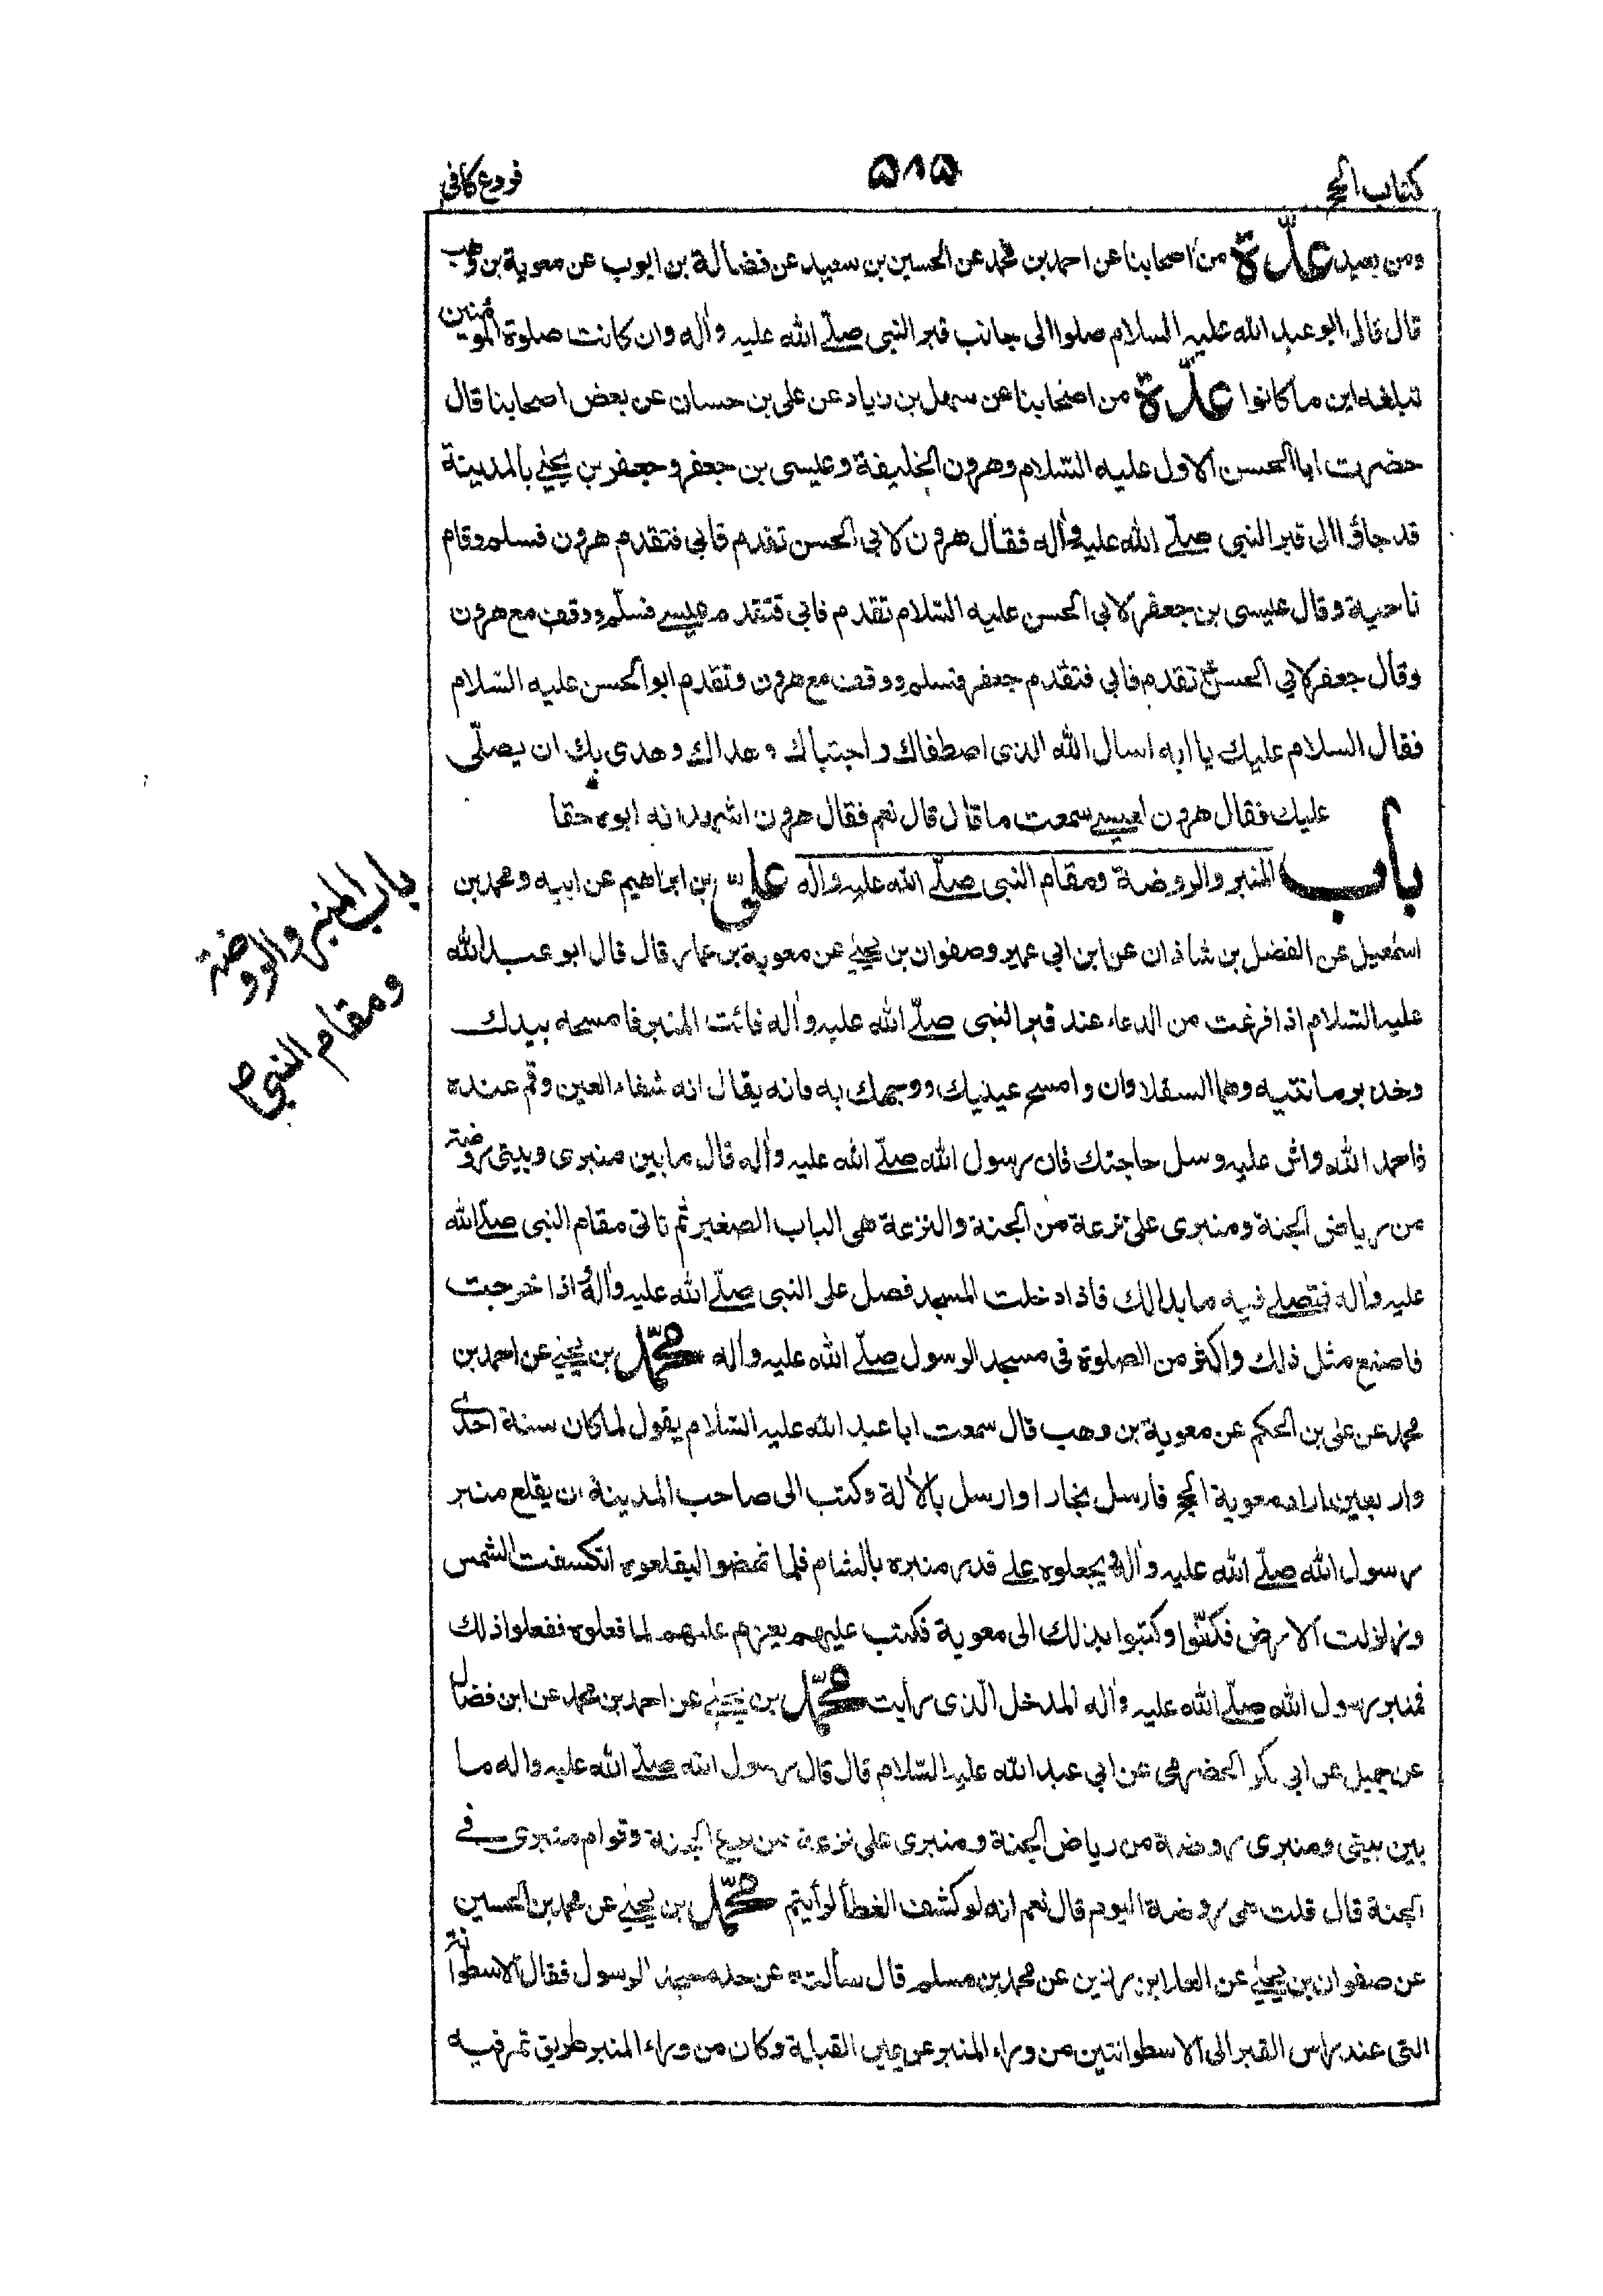 كتاب الحج
٥٨٥
فروع كافي
ومن بعيد عدّة من اصحابنا عن احمد بن محمد عن الحسين بن سعيد عن فضالة بن ايوب عن معوية بن وهب
قال قال ابو عبد الله عليه السلام صلوا الى جانب قبر النبى صلّے الله عليه واٰله وان كانت صلوة المؤمنين
تبلغه اين ما كانوا عدّة من اصحابنا عن سهل بن زياد عن على بن حسان عن بعض اصحابنا قال
حضرت ابا الحسن الاول عليه السّلام وهرون الخليفة وعيسى بن جعفر وجعفر بن يحيٰے بالمدينة
قد جاؤا الى قبر النبى صلّے الله عليه واٰله فقال هرون لابي الحسن تقدم فابي فتقدم هرون فسلم وقام
ناحية وقال عيسى بن جعفر لابي الحسن عليه السّلام تقدم فابى فتقدم عيسے فسلّم ووقف مع هرون
وقال جعفر لابي الحسن ع تقدم فابى فتقدم جعفر فسلم ووقف مع هرون وتقدم ابو الحسن عليه السّلام
فقال السلام عليك يا ابه اسال الله الذى اصطفاك واجتباك وهداك وهدى بك ان يصلّى
عليك فقال هرون لعيسے سمعت ما قال قال نعم فقال هرون اشهد انه ابوه حقا
باب المنبر والروضة ومقام النبى صلّے الله عليه واٰله علىّ بن ابراهيم عن ابيه ومحمد بن
اسمٰعيل عن الفضل بن شاذان عن ابن ابي عمير وصفوان بن يحيٰے عن معوية بن عمار قال قال ابو عبد الله
عليه السّلام اذا فرغت من الدعاء عند قبر النبى صلّے الله عليه واٰله فائت المنبر فامسحه بيدك
وخذ برمانتيه وهما السفلاوان وامسح عينيك ووجهك به فانه يقال انه شفاء العين وقم عنده
فاحمد الله واثن عليه وسل حاجتك فان رسول الله صلّے الله عليه واٰله قال ما بين منبرى وبيتى روضة
من رياض الجنة ومنبرى على ترعة من الجنة والترعة هى الباب الصغير ثم تاتى مقام النبى صلّے الله
عليه واٰله فتصلے فيه ما بدا لك فاذا دخلت المسجد فصل على النبى صلّے الله عليه واٰله واذا خرجت
فاصنع مثل ذلك واكثر من الصلوة فى مسجد الرسول صلّے الله عليه واٰله محمّد بن يحيٰے عن احمد بن
محمد عن على بن الحكم عن معوية بن وهب قال سمعت ابا عبد الله عليه السّلام يقول لما كان سنة احدى
واربعين اراد معوية الحج فارسل نجارا وارسل بالاٰلة وكتب الى صاحب المدينة ان يقلع منبر
رسول الله صلّے الله عليه واٰله ويجعلوه علے قدر منبره بالشام فلما نهضوا ليقلعوه انكسفت الشمس
وزلزلت الارض فكفّوا وكتبوا بذلك الى معوية فكتب عليهم يعزم عليهم لما فعلوه ففعلوا ذلك
فمنبر رسول الله صلّے الله عليه واٰله المدخل الّذى رأيت محمّد بن يحيٰے عن احمد بن محمد عن ابن فضال
عن جميل عن ابى بكر الحضرمى عن ابي عبد الله عليه السّلام قال قال رسول الله صلّے الله عليه واله ما
بين بيتى ومنبرى روضة من رياض الجنة ومنبرى على ترعة من ترع الجنة وقوام منبرى فے
الجنة قال قلت هى روضة اليوم قال نعم انه لو كشف الغطأ لرأيتم محمّد بن يحيٰے عن محمد بن الحسين
عن صفوان بن يحيٰے عن العلا بن رزين عن محمد بن مسلم قال سألته عن حد مسجد الرسول فقال الاسطوانة
التى عند راس القبر الى الاسطوانتين من وراء المنبر عن يمين القبلة وكان من وراء المنبر طريق تمر فيه
باب المنبر والروضة
ومقام النبي ص